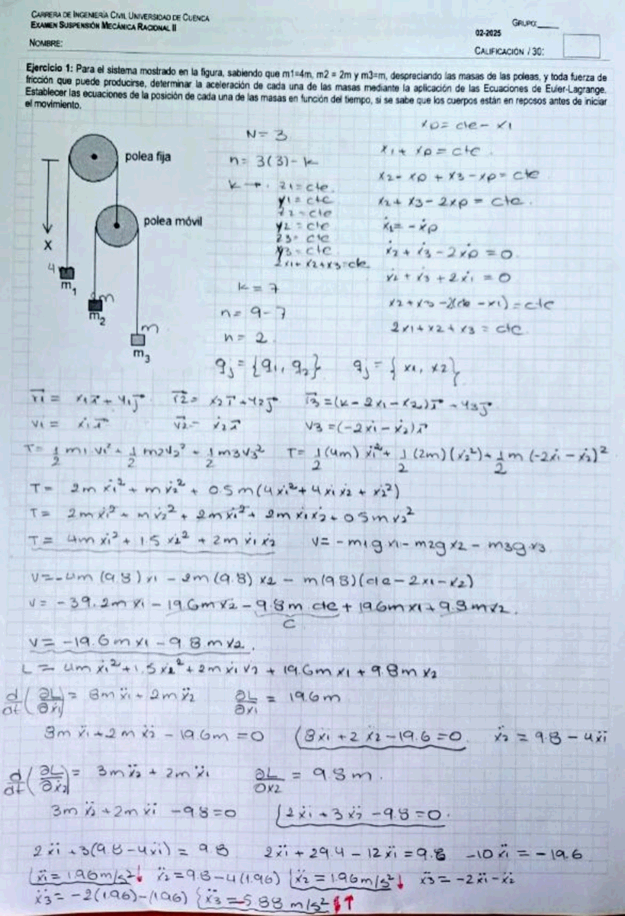 CARRERA DE INGENIERÍA CIVIL UNIVERSIDAD DE CUENCA
EXAMEN SUSPENSIÓN MECÁNICA RACIONAL II
GRUPO:
02-2025
NOMBRE:
CALIFICACIÓN / 30:
Ejercicio 1: Para el sistema mostrado en la figura, sabiendo que m1=4m, m2 = 2m y m3=m, despreciando las masas de las poleas, y toda fuerza de
fricción que puede producirse, determinar la aceleración de cada una de las masas mediante la aplicación de las Ecuaciones de Euler-Lagrange.
Establecer las ecuaciones de la posición de cada una de las masas en función del tiempo, si se sabe que los cuerpos están en reposos antes de iniciar
el movimiento.
polea fija
polea móvil
X
4m
m1
m
m2
m
m3
N = 3
n = 3(3) - k
k → z1 = cte.
y1 = cte
z2 = cte
y2 = cte
z3 = cte
y3 = cte
2x1 + x2 + x3 = cte
k = 7
n = 9 - 7
n = 2
xp = cte - x1
x1 + xp = cte.
x2 - xp + x3 - xp = cte
x2 + x3 - 2xp = cte.
ẋ1 = -ẋp
ẋ2 + ẋ3 - 2ẋp = 0.
ẋ2 + ẋ3 + 2ẋ1 = 0
x2 + x3 - 2(cte - x1) = cte
2x1 + x2 + x3 = cte
qj = {q1, q2} qj = {x1, x2}
r1 = x1i + y1j r2 = x2i + y2j r3 = (k - 2x1 - x2)i + y3j
v1 = ẋ1i v2 = ẋ2i v3 = (-2ẋ1 - ẋ2)i
T = 1/2 m1 v1² + 1/2 m2 v2² + 1/2 m3 v3² T = 1/2 (4m) ẋ1² + 1/2 (2m)(ẋ2²) + 1/2 m (-2ẋ1 - ẋ2)²
T = 2m ẋ1² + m ẋ2² + 0.5m (4ẋ1² + 4ẋ1 ẋ2 + ẋ2²)
T = 2m ẋ1² + m ẋ2² + 2m ẋ1² + 2m ẋ1ẋ2 + 0.5m ẋ2²
T = 4m ẋ1² + 1.5 ẋ2² + 2m ẋ1 ẋ2 V = -m1g x1 - m2g x2 - m3g x3
V = -4m (9.8) x1 - 2m (9.8) x2 - m (9.8)(cte - 2x1 - x2)
V = -39.2m x1 - 19.6m x2 - 9.8m cte + 19.6m x1 + 9.8m x2.
C
V = -19.6m x1 - 9.8m x2.
L = 4m ẋ1² + 1.5 ẋ2² + 2m ẋ1 ẋ2 + 19.6m x1 + 9.8m x2
d/dt (∂L/∂ẋ1) = 8m ẍ1 + 2m ẍ2 ∂L/∂x1 = 19.6m
8m ẍ1 + 2m ẍ2 - 19.6m = 0 8ẍ1 + 2ẍ2 - 19.6 = 0 ẍ2 = 9.8 - 4ẍ1
d/dt (∂L/∂ẋ2) = 3m ẍ2 + 2m ẍ1 ∂L/∂x2 = 9.8m.
3m ẍ2 + 2m ẍ1 - 9.8 = 0 2ẍ1 + 3ẍ2 - 9.8 = 0.
2ẍ1 + 3(9.8 - 4ẍ1) = 9.8 2ẍ1 + 29.4 - 12ẍ1 = 9.8 -10ẍ1 = -19.6
ẍ1 = 1.96 m/s² ↓ ẍ2 = 9.8 - 4(1.96) ẍ2 = 1.96 m/s² ↓ ẍ3 = -2ẍ1 - ẍ2
ẍ3 = -2(1.96) - (1.96) ẍ3 = -5.88 m/s² ↑